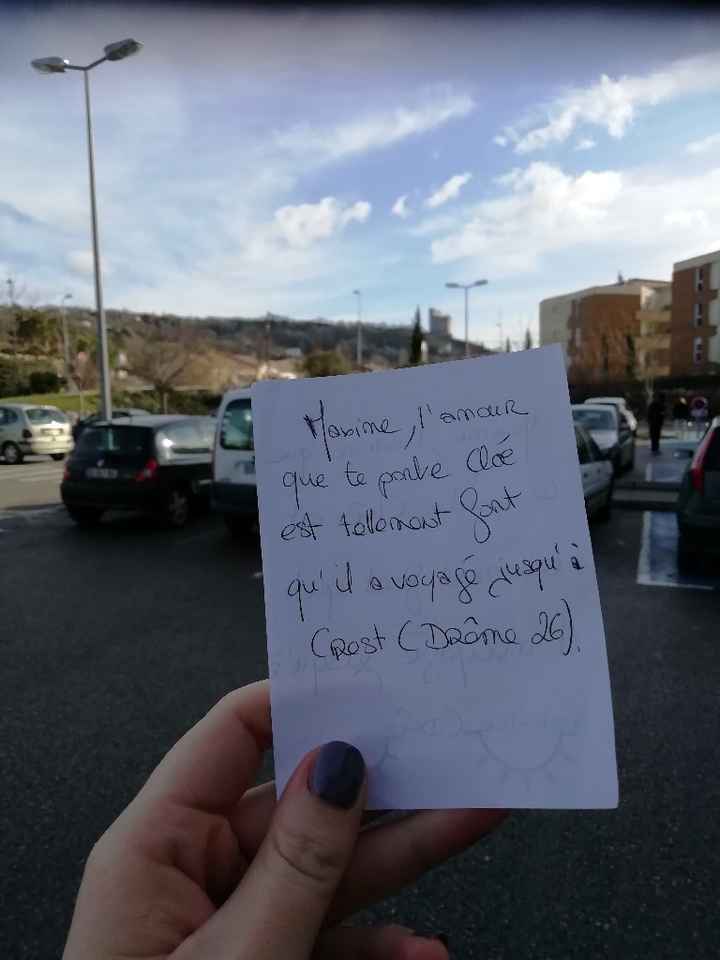 Maxime, l'amour
que te porte Cloé
est tellement fort
qu'il a voyagé jusqu'à
Crest (Drôme 26).